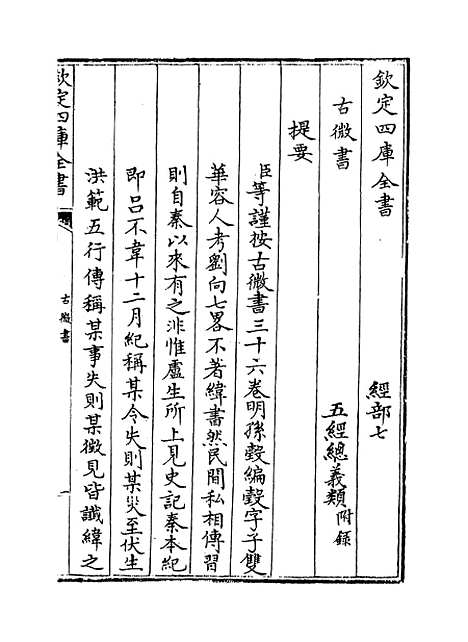 欽定四庫全書　經部七
古微書　五經總義類附錄
提要
臣等謹按古微書三十六卷明孫瑴編瑴字子雙
華容人考劉向七畧不著緯書然民間私相傳習
則自秦以來有之非惟盧生所上見史記秦本紀
即呂不韋十二月紀稱某令失則某災至伏生
洪範五行傳稱某事失則某徵見皆讖緯之
欽定四庫全書
古微書
一